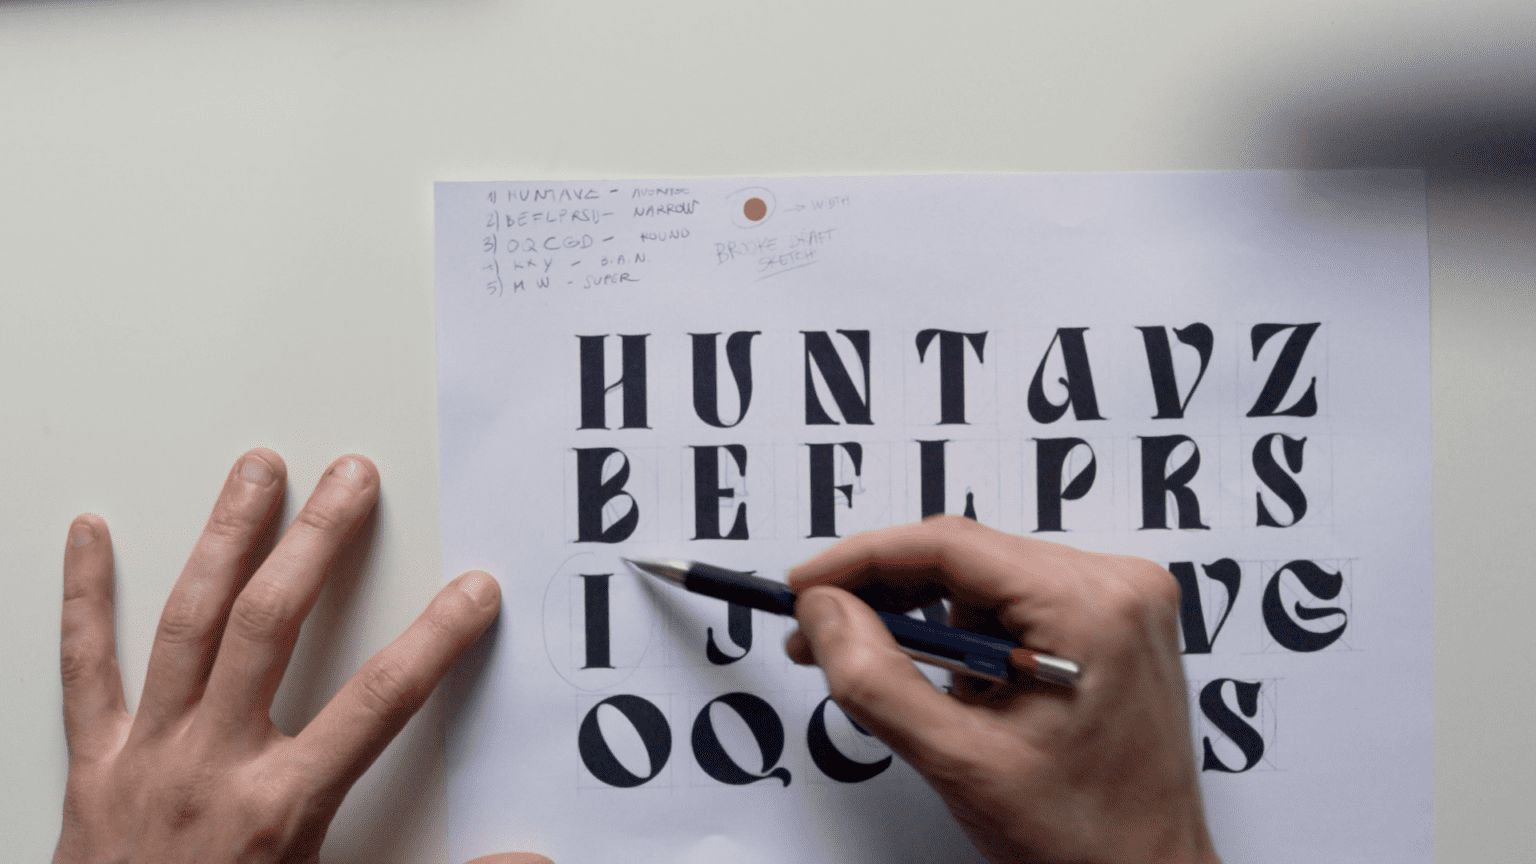 1) HUNTAVZ - AVERAGE
2) BEFLPRSU - NARROW
3) OQCGD - ROUND
4) KXY - B.A.N.
5) M W - SUPER
→ WIDTH
BROOKE DRAFT
SKETCH
HUNTAVZ
BEFLPRS
I J V G
OQC S